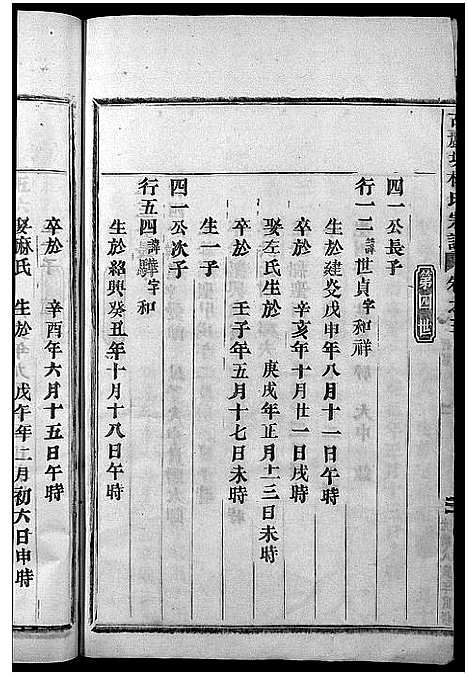 第四世
四一公長子
行一二諱世貞字和祥
生於建炎戊申年八月十一日午時
卒於辛亥年十月廿一日戌時
娶左氏生於庚戌年正月十三日未時
卒於壬子年五月十七日未時
生一子
四一公次子
行五四諱驊字和
生於紹興癸丑年十月十八日午時
卒於辛酉年六月十五日午時
娶麻氏生於戊午年二月初六日申時